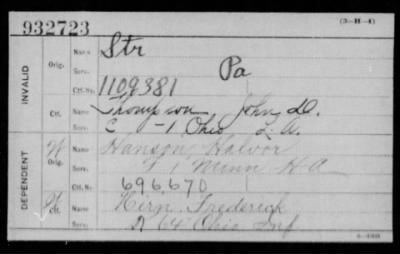 932723 (3-H-4)
INVALID Orig. Name Str
Serv. Pa
Ctf. No. 1109381
Ctf. Name Thompson John D.
Serv. E - 1 Ohio L. A.
DEPENDENT W Orig. Name Hanson Halvor
Serv. 1 Minn H A
Ctf. No. 696670
W Ctf. Name Hirn Frederick
Serv. D 64 Ohio Inf